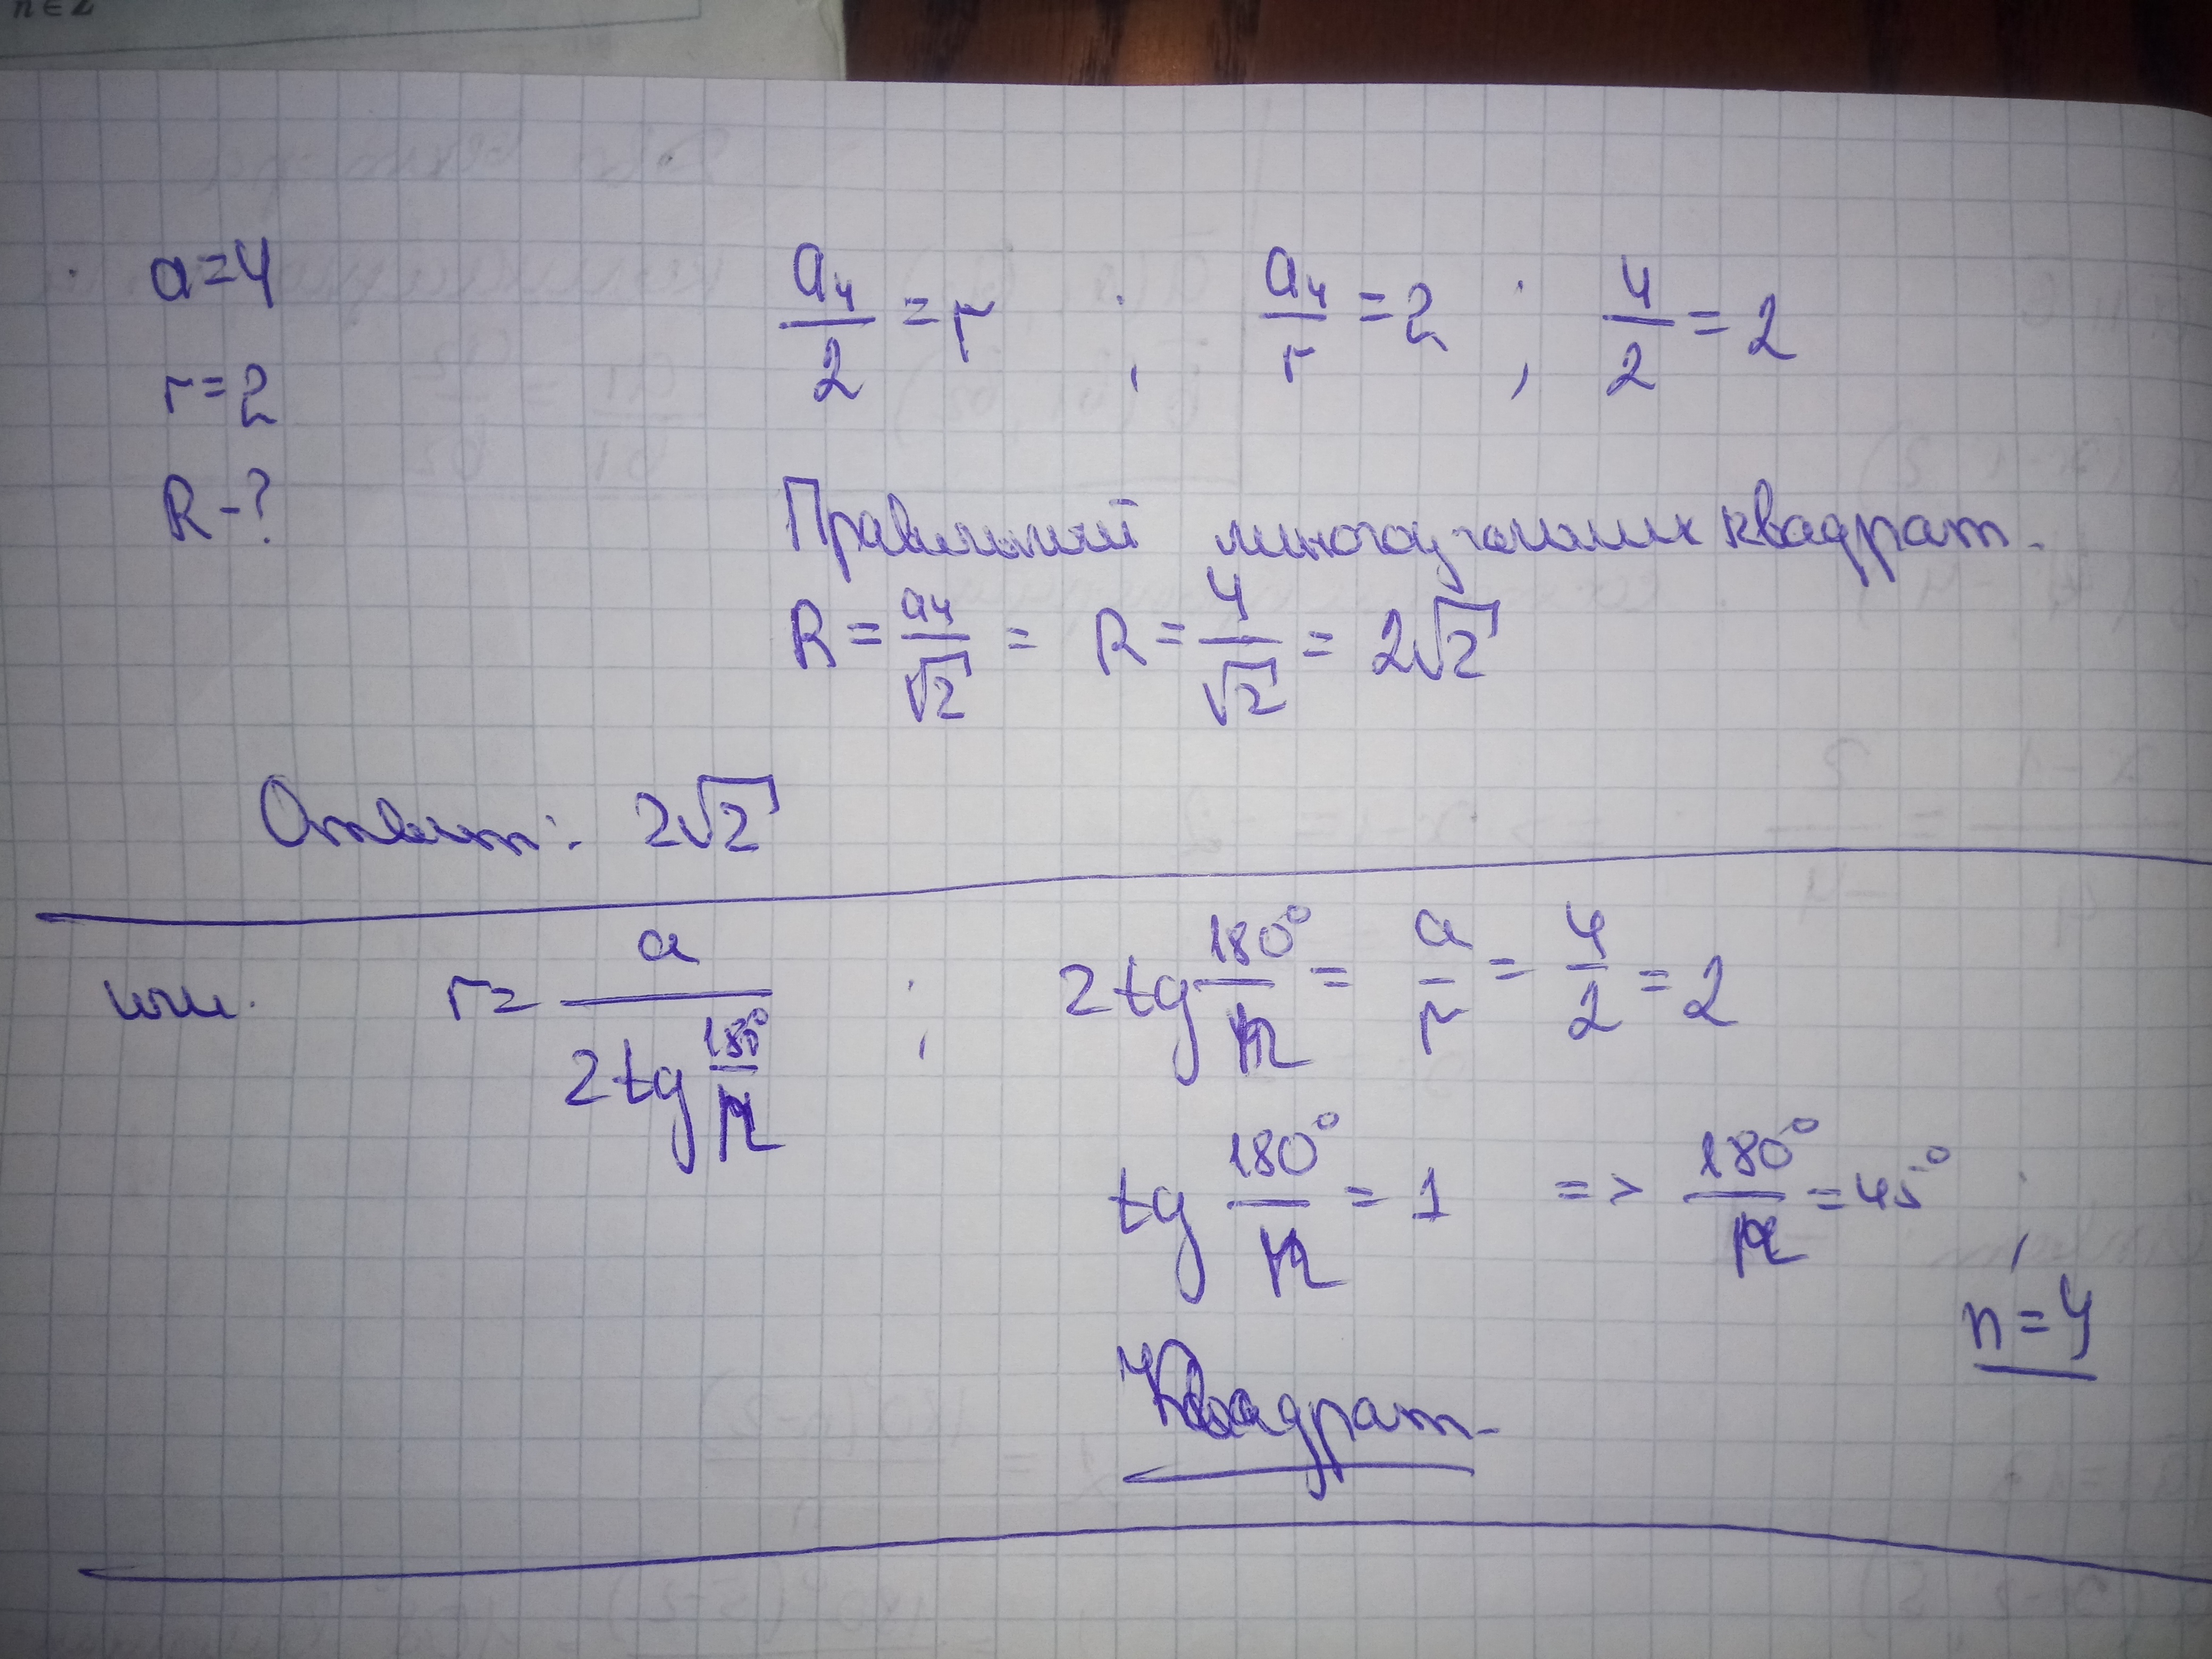 n ∈ Z
a=4
r=2
R-?
a₄/2 = r ; a₄/r = 2 ; 4/2 = 2
Правильный многоугольник квадрат.
R = a₄/√2 = R = 4/√2 = 2√2
Ответ: 2√2
или. r = a/(2tg 180°/n) ; 2tg 180°/n = a/r = 4/2 = 2
tg 180°/n = 1 => 180°/n = 45° ;
n=4
Квадрат.